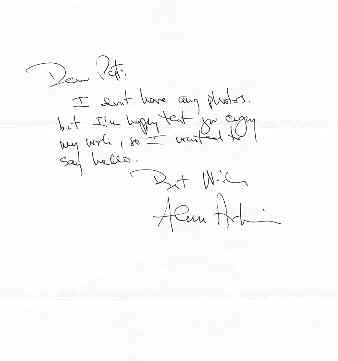 Dear Pat:
I don't have any photos.
but I'm happy that you enjoy
my work, so I wanted to
say hello.
Best Wishes
Alan